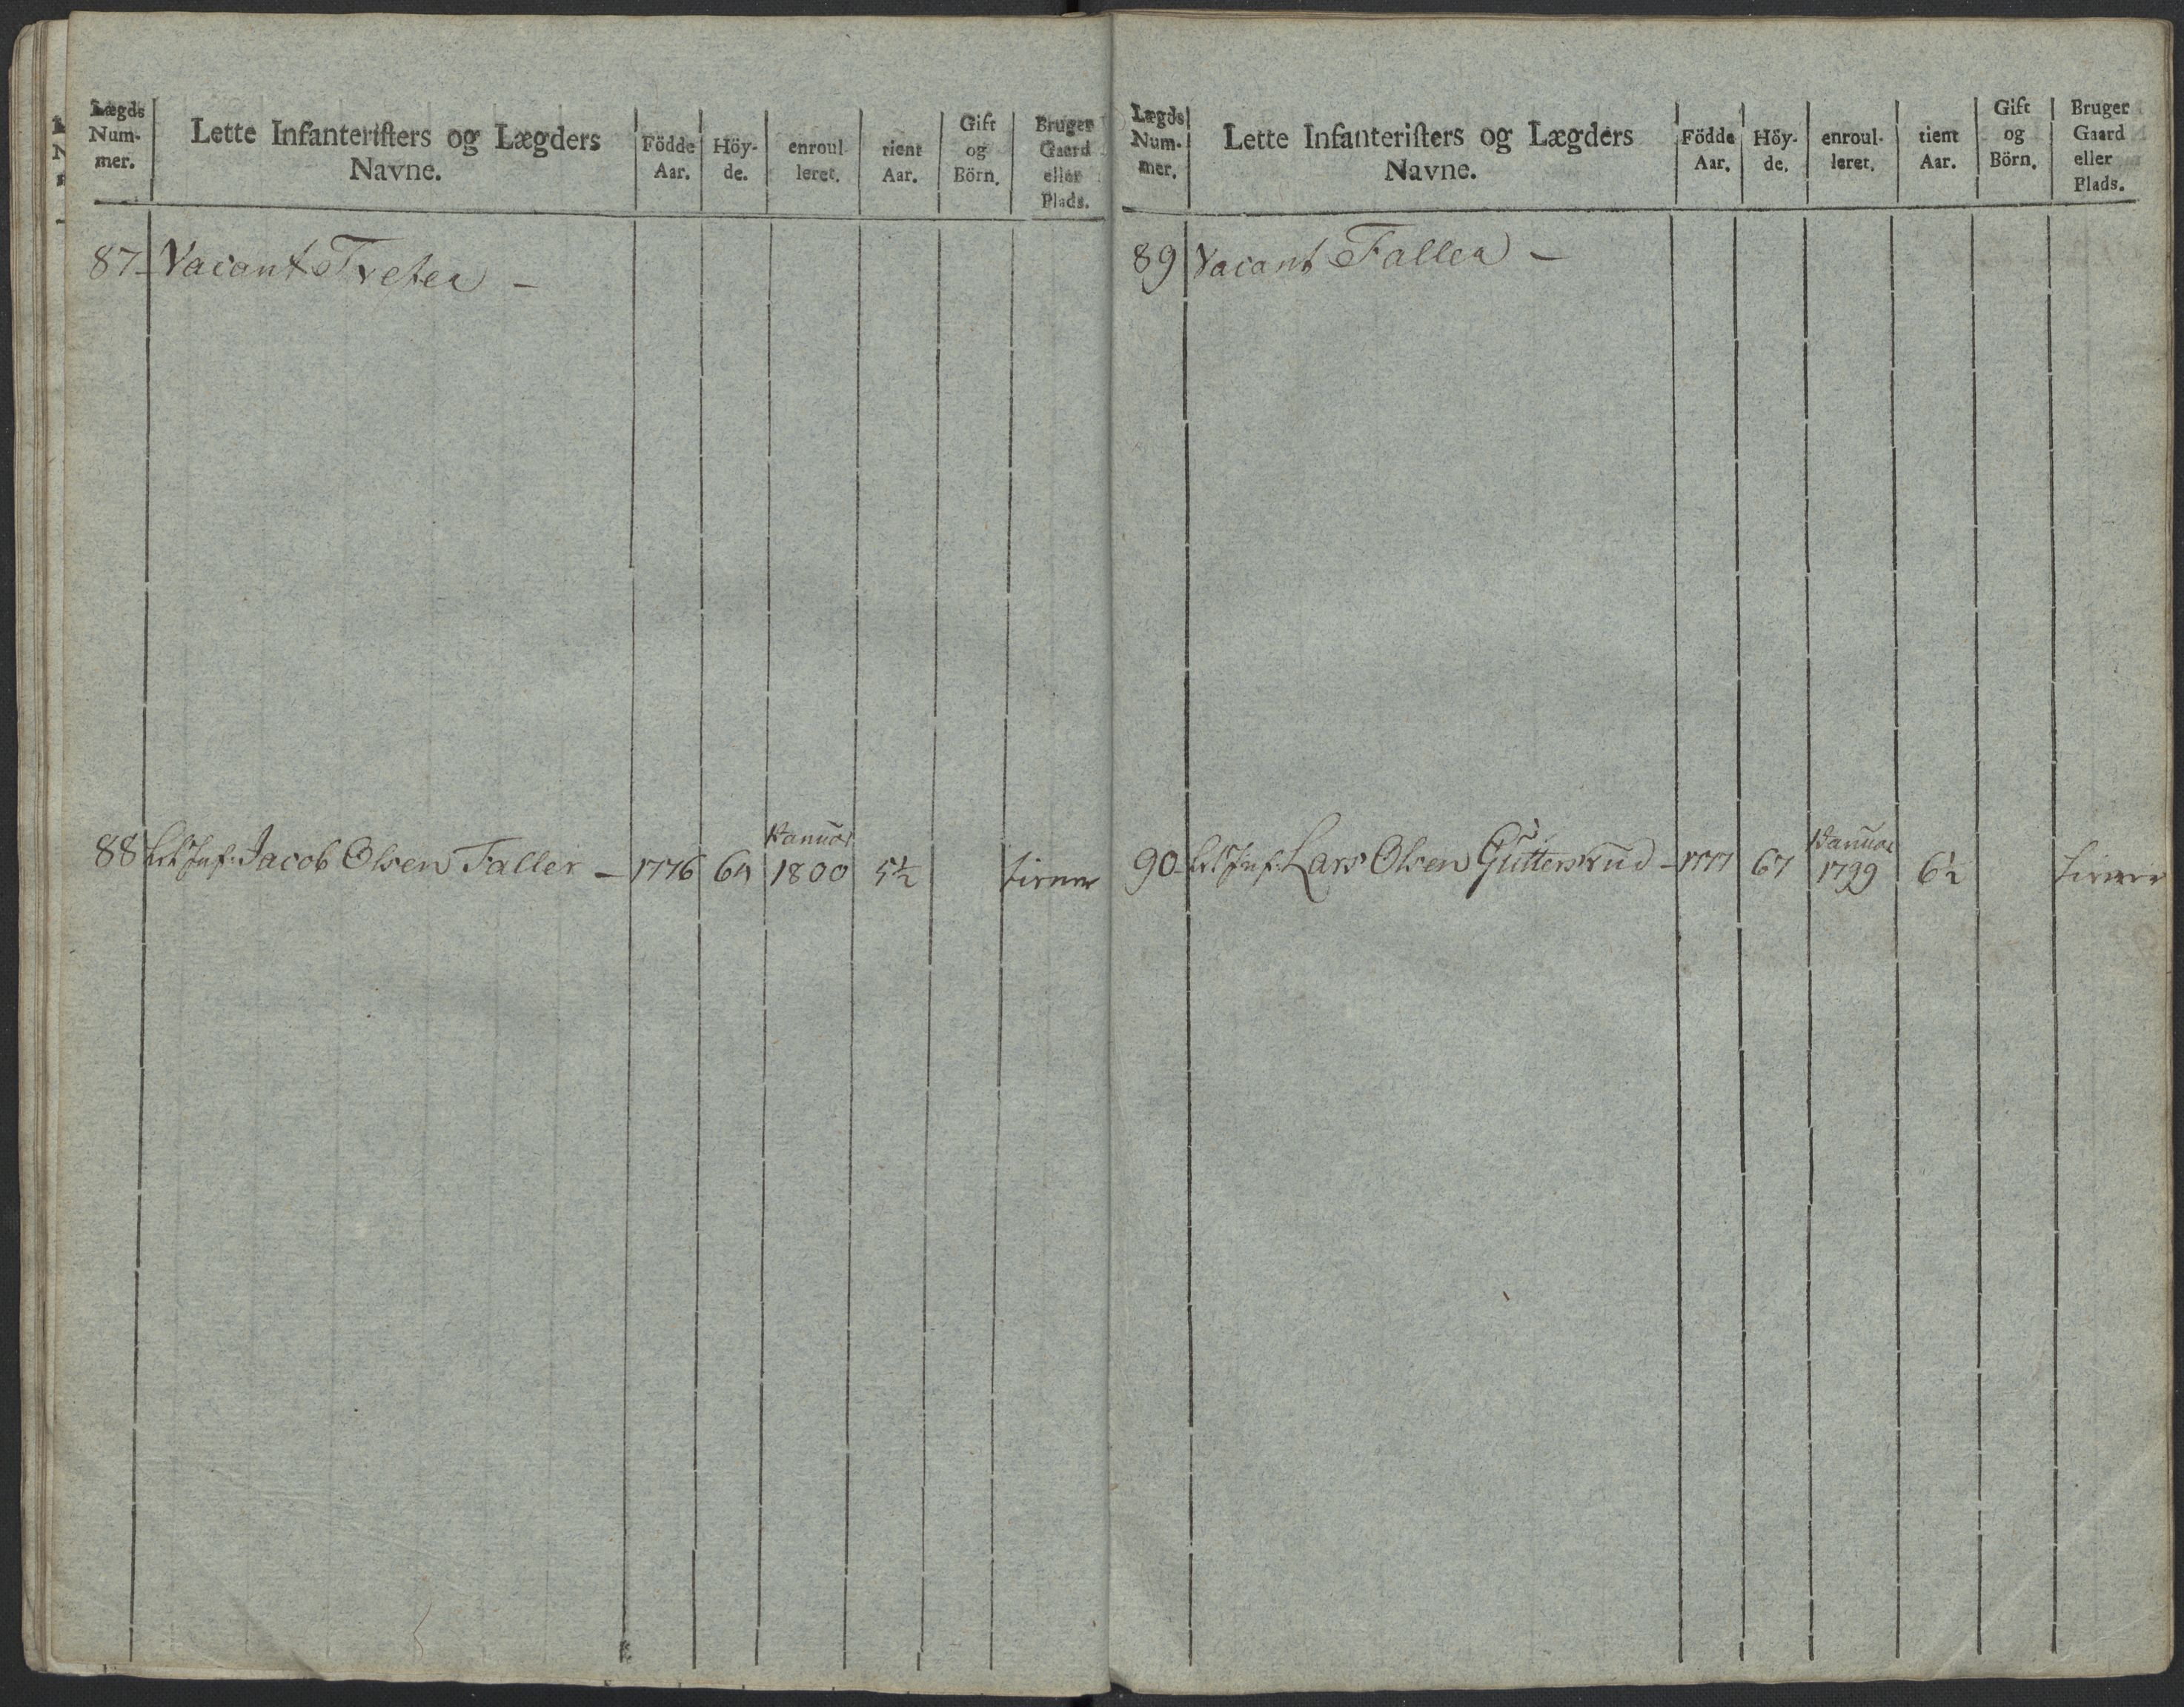 Lægds Num- mer. Lette Infanteriſters og Lægders Navne. Födde Aar. Höy- de. enroul- leret. tient Aar. Gift og Börn. Bruger Gaard eller Plads.
87 Vacant Tveten -
88 Let Inf: Jacob Olsen Faller - 1776 64 Januar 1800 5½ tiener
Lægds Num- mer. Lette Infanteriſters og Lægders Navne. Födde Aar. Höy- de. enroul- leret. tient Aar. Gift og Börn. Bruger Gaard eller Plads.
89 Vacant Falla -
90 Let Inf: Lars Olsen Gutterskud - 1777 67 Januar 1799 6½ tiener